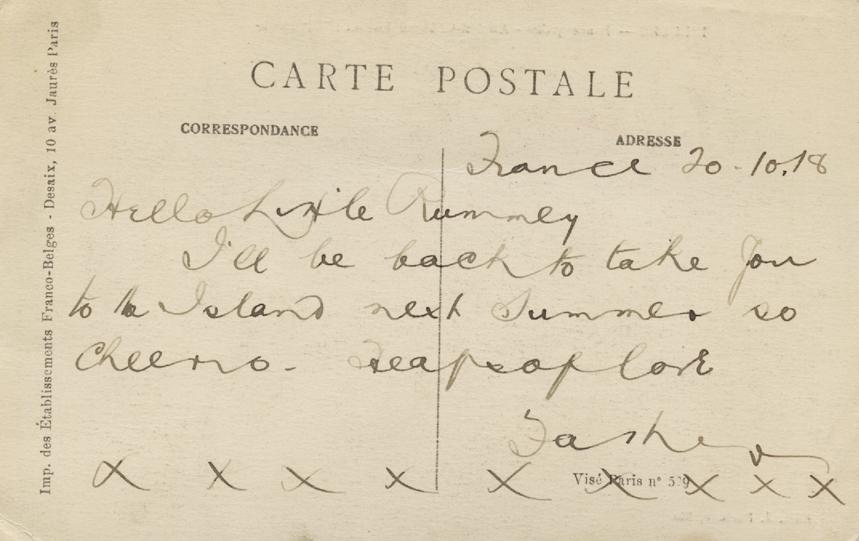 CARTE POSTALE
CORRESPONDANCE
ADRESSE
France 20-10.18
Hello Little Rummey
I'll be back to take you
to the Island next Summer so
Cheerio. Heaps of love
x x x x x x x x x
Visé Paris n° 509
Imp. des Établissements Franco-Belges - Desaix, 10 av Jaurès Paris